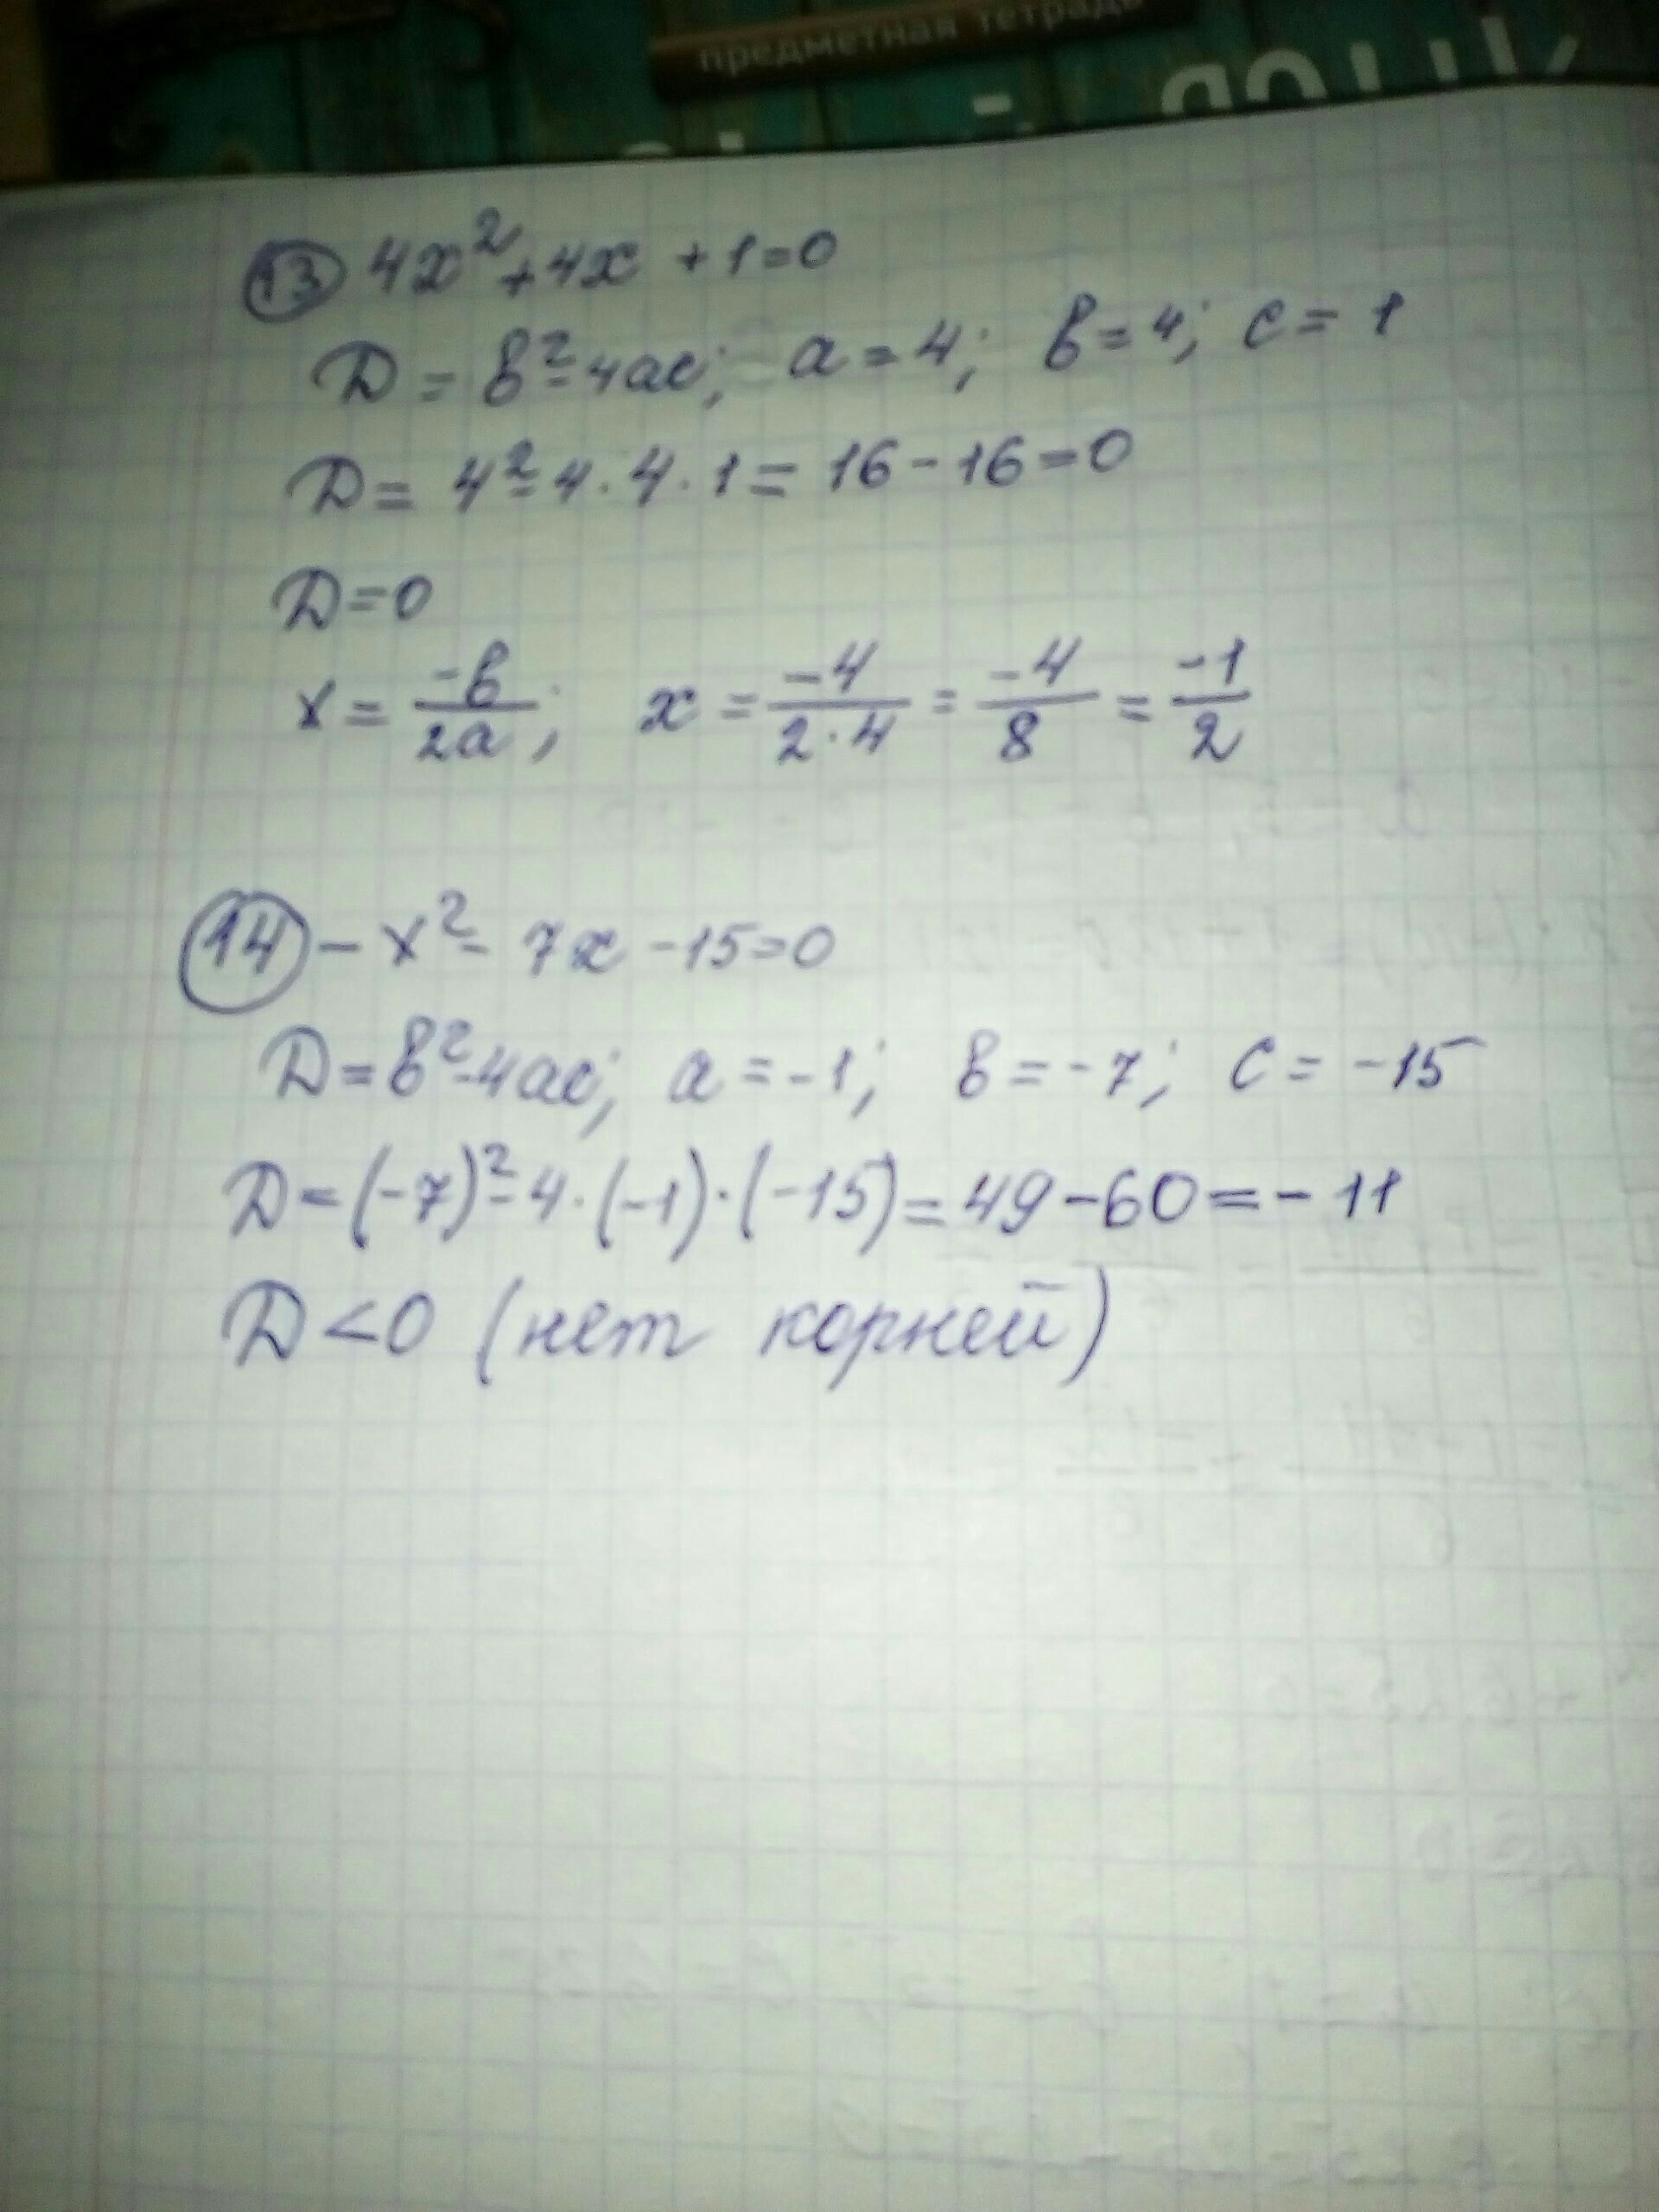 предметная тетрадь
13 4x² + 4x + 1 = 0
D = b² - 4ac; a = 4; b = 4; c = 1
D = 4² - 4 · 4 · 1 = 16 - 16 = 0
D = 0
x = -b/2a; x = -4/2·4 = -4/8 = -1/2
14 - x² - 7x - 15 = 0
D = b² - 4ac; a = -1; b = -7; c = -15
D = (-7)² - 4 · (-1) · (-15) = 49 - 60 = - 11
D < 0 (нет корней)